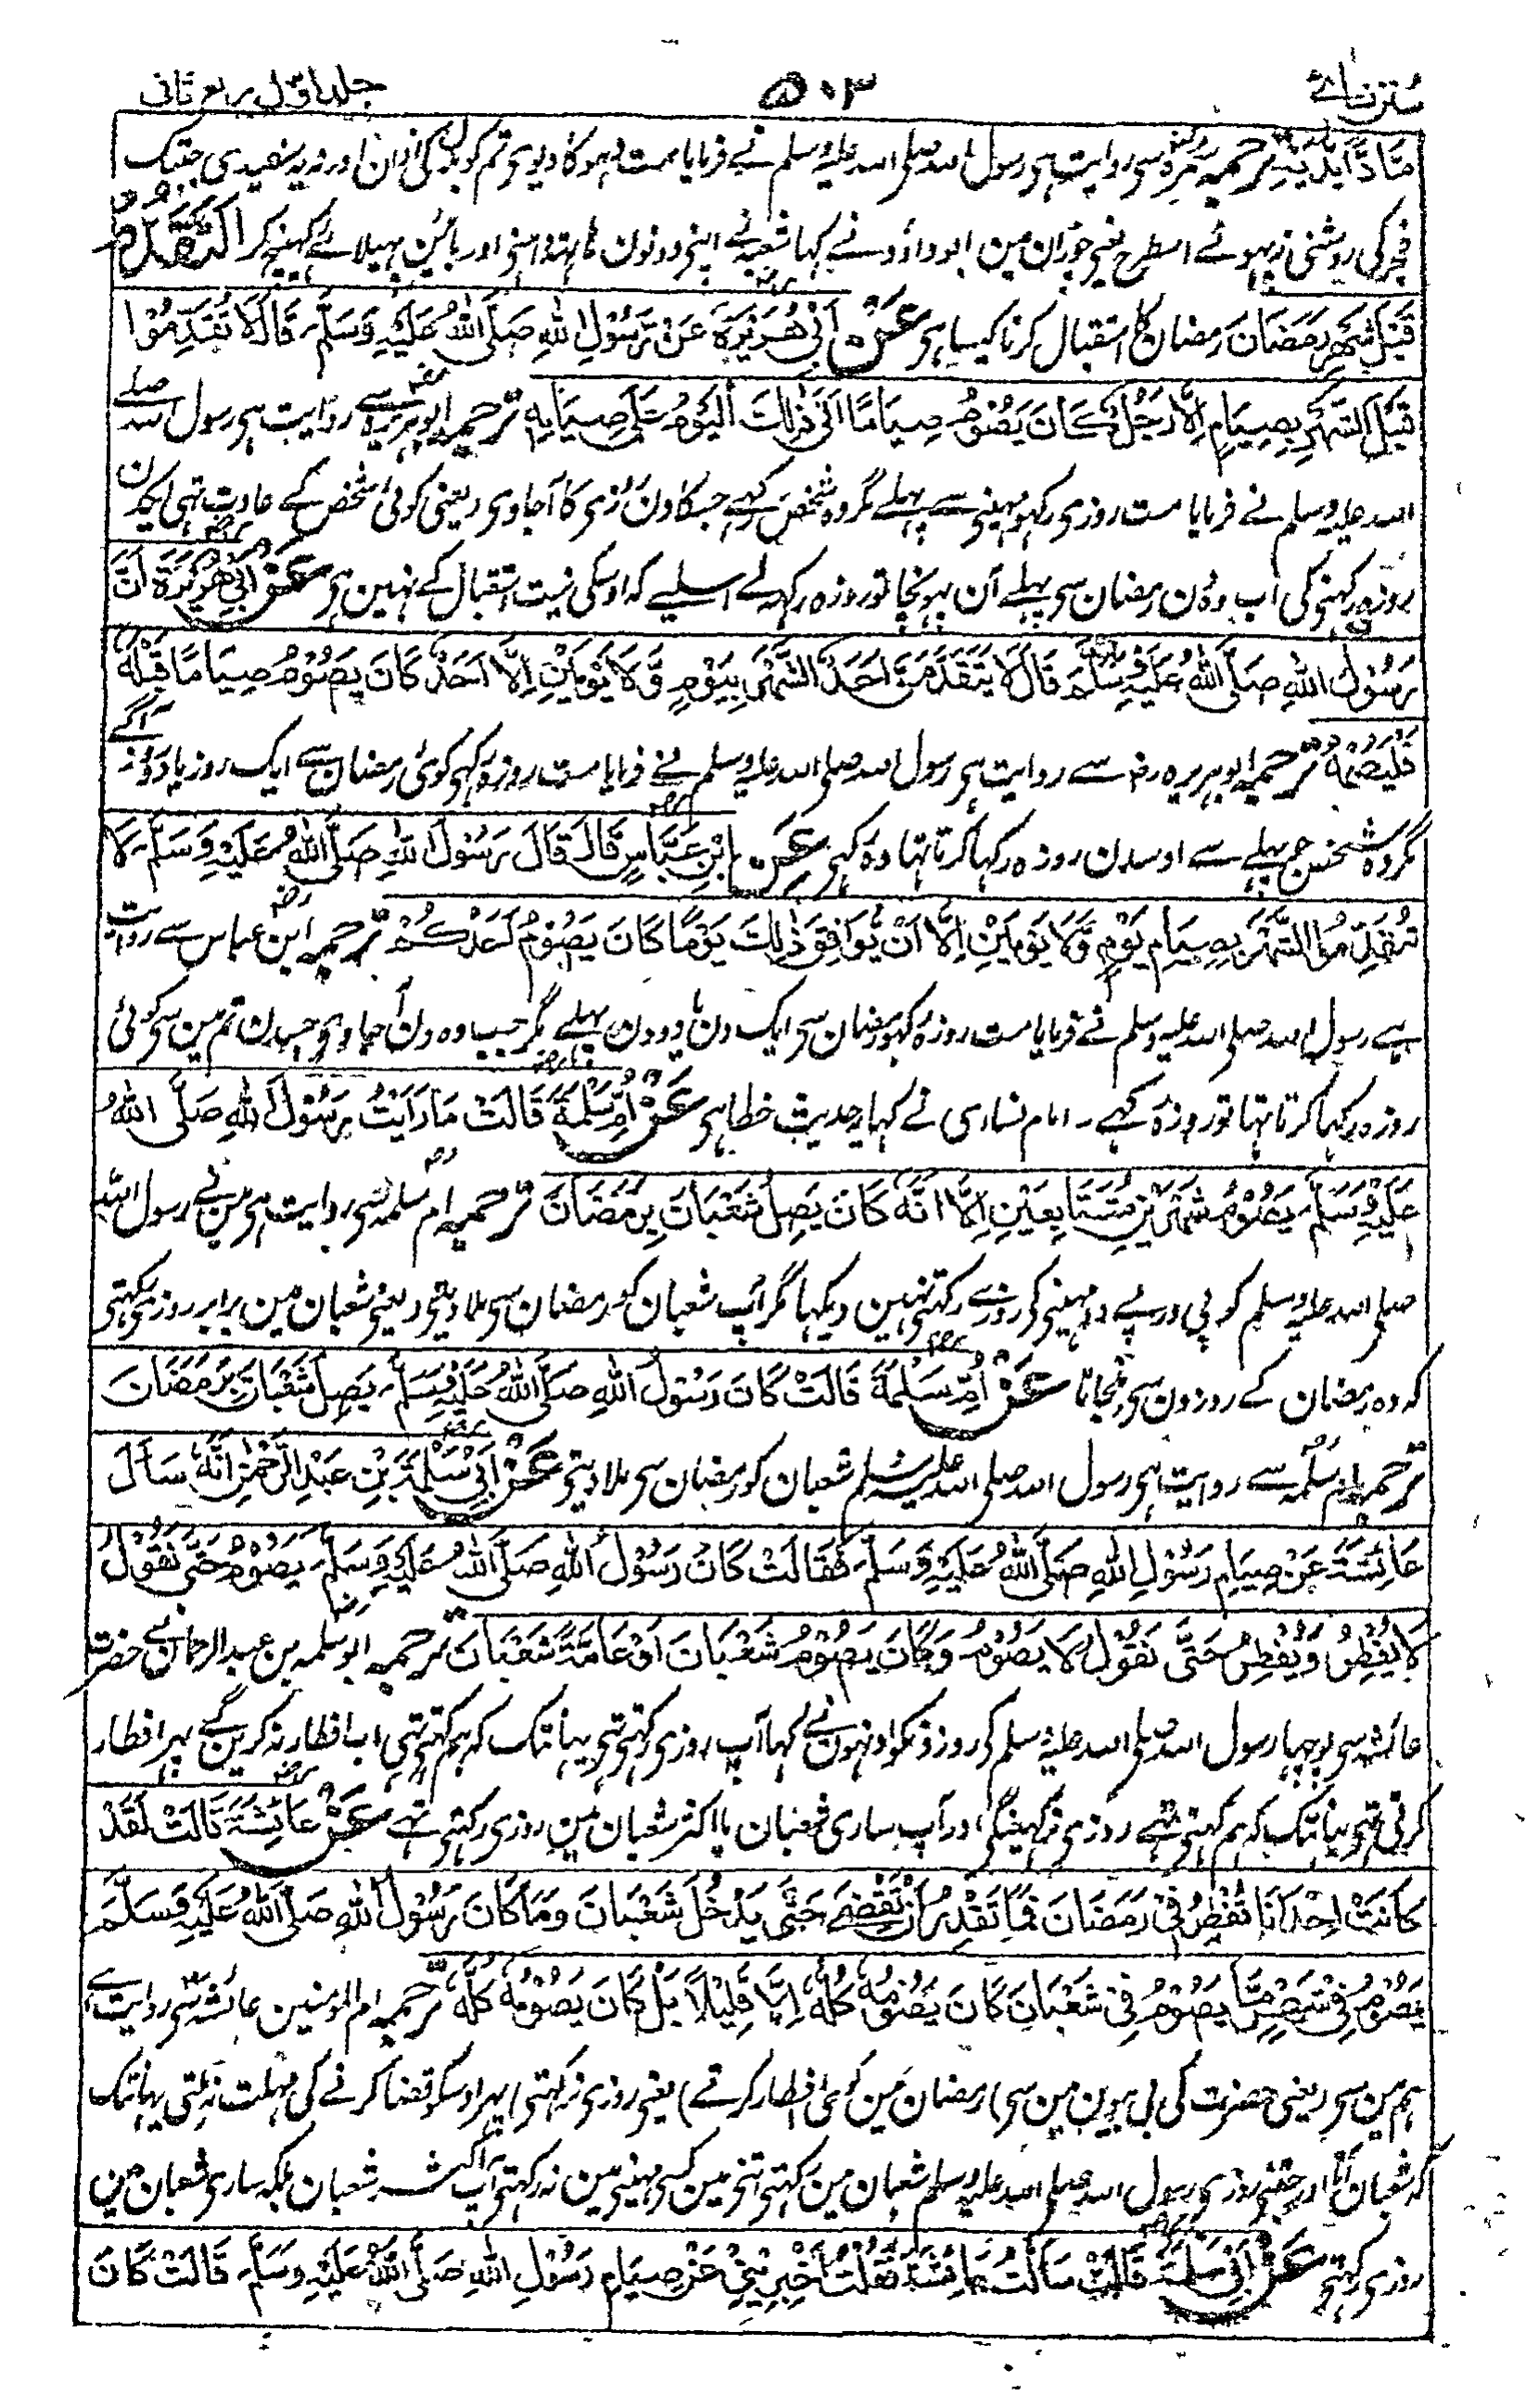 سنن نسائے
۵۰۳
جلد اول ربع ثانی
مَادًّا يَدَيْهِ ترجمہ سمرہ سی روایت ہی رسول اللہ صلی اللہ علیہ وسلم نے فرمایا مت دہوکا دیوی تم کو بلال کی اذان اور نہ یہ سفیدی جبتک
فجر کی روشنی نہ پہوٹے اسطرح یعنی چوڑان مین ابو داؤد نے کہا شعبہ نے اپنی دونون ہاتہہ داہنی اور بائین پہیلائے کہینچ کر التَّقَدُّمُ
قَبْلَ شَهْرِ رَمَضَانَ رمضان کا استقبال کرنا کیسا ہی عَنْ اَبِيْ هُرَيْرَةَ عَنْ رَسُوْلِ اللهِ صَلَّى اللهُ عَلَيْهِ وَسَلَّمَ قَالَ لَا تَقَدَّمُوْا
قَبْلَ الشَّهْرِ بِصِيَامٍ اِلَّا رَجُلٌ كَانَ يَصُوْمُ صِيَامًا اَتَى ذٰلِكَ الْيَوْمُ عَلَى صِيَامِهِ ترجمہ ابوہریرہ سے روایت ہی رسول اللہ صلے
اللہ علیہ وسلم نے فرمایا مت روزی رکہو مہینی سے پہلے مگر وہ شخص رکہے جسکا دن روزی کا آجاوی (یعنی کوئی شخص کے عادت تہی ایکدن
روزہ رکہنو کی اب وہ دن رمضان سی پہلے آن پہونچا تو روزہ رکہہ لے اسلیے کہ اوسکی نیت استقبال کے نہین ہی عَنْ اَبِيْ هُرَيْرَةَ اَنَّ
رَسُوْلَ اللهِ صَلَّى اللهُ عَلَيْهِ وَسَلَّمَ قَالَ لَا يَتَقَدَّمَنَّ اَحَدٌ الشَّهْرَ بِيَوْمٍ وَّلَا يَوْمَيْنِ اِلَّا اَحَدٌ كَانَ يَصُوْمُ صِيَامًا قَبْلَهُ
فَلْيَصُمْهُ ترجمہ ابوہریرہ رضہ سے روایت ہی رسول اللہ صلی اللہ علیہ وسلم نے فرمایا مت روزہ رکہی کوئی رمضان سے ایک روز یا دو روز آگے
مگر وہ شخص جو پہلے سے اوسدن روزہ رکہا کرتا تہا وہ رکہی عَنِ ابْنِ عَبَّاسٍ قَالَ قَالَ رَسُوْلُ اللهِ صَلَّى اللهُ عَلَيْهِ وَسَلَّمَ لَا
تَتَقَدَّمُوا الشَّهْرَ بِصِيَامِ يَوْمٍ وَّلَا يَوْمَيْنِ اِلَّا اَنْ يُّوَافِقَ ذٰلِكَ يَوْمًا كَانَ يَصُوْمُ اَحَدُكُمْ ترجمہ ابن عباس سے روایت
ہے رسول اللہ صلی اللہ علیہ وسلم نے فرمایا مت روزہ رکہو رمضان سی ایک دن یا دو دن پہلے مگر جب وہ دن آجاوی جسدن تم مین سی کوئی
روزہ رکہا کرتا تہا تو روزہ رکہے۔ امام نسائی نے کہا یہ حدیث خطا ہی عَنْ اُمِّ سَلَمَةَ قَالَتْ مَا رَاَيْتُ رَسُوْلَ اللهِ صَلَّى اللهُ
عَلَيْهِ وَسَلَّمَ يَصُوْمُ شَهْرَيْنِ مُتَتَابِعَيْنِ اِلَّا اَنَّهُ كَانَ يَصِلُ شَعْبَانَ بِرَمَضَانَ ترجمہ ام سلمہ سی روایت ہی مین نے رسول اللہ
صلی اللہ علیہ وسلم کو پی درپے دو مہینی کی روزے رکہتی نہین دیکہا مگر آپ شعبان کو رمضان سی ملا دیتی (یعنی شعبان مین برابر روزی رکہتی
کہ وہ رمضان کے روزون سی ملجاتا عَنْ اُمِّ سَلَمَةَ قَالَتْ كَانَ رَسُوْلُ اللهِ صَلَّى اللهُ عَلَيْهِ وَسَلَّمَ يَصِلُ شَعْبَانَ بِرَمَضَانَ
ترجمہ ام سلمہ سے روایت ہی رسول اللہ صلی اللہ علیہ وسلم شعبان کو رمضان سی ملا دیتی عَنْ اَبِيْ سَلَمَةَ بْنِ عَبْدِ الرَّحْمٰنِ اَنَّهُ سَاَلَ
عَائِشَةَ عَنْ صِيَامِ رَسُوْلِ اللهِ صَلَّى اللهُ عَلَيْهِ وَسَلَّمَ فَقَالَتْ كَانَ رَسُوْلُ اللهِ صَلَّى اللهُ عَلَيْهِ وَسَلَّمَ يَصُوْمُ حَتّٰى نَقُوْلَ
لَا يُفْطِرُ وَيُفْطِرُ حَتّٰى نَقُوْلَ لَا يَصُوْمُ وَكَانَ يَصُوْمُ شَعْبَانَ اَوْ عَامَّةَ شَعْبَانَ ترجمہ ابو سلمہ بن عبدالرحمان نے حضرت
عائشہ سی پوچہا رسول اللہ صلی اللہ علیہ وسلم کی روزونکو اونہون نے کہا آپ روزی رکہتی تہی یہانتک کہ ہم کہتی تہی اب افطار نہ کرینگے پہر افطار
کرتی تہی یہانتک کہ ہم کہتی تہے روزی نرکہینگی اور آپ ساری شعبان یا اکثر شعبان مین روزی رکہتی تہے عَنْ عَائِشَةَ قَالَتْ لَقَدْ
كَانَتْ اِحْدَانَا تُفْطِرُ فِيْ رَمَضَانَ فَمَا تَقْدِرُ اَنْ تَقْضِيَ حَتّٰى يَدْخُلَ شَعْبَانُ وَمَا كَانَ رَسُوْلُ اللهِ صَلَّى اللهُ عَلَيْهِ وَسَلَّمَ
يَصُوْمُ فِيْ شَهْرٍ مَّا يَصُوْمُ فِيْ شَعْبَانَ كَانَ يَصُوْمُهُ كُلَّهُ اِلَّا قَلِيْلًا بَلْ كَانَ يَصُوْمُهُ كُلَّهُ ترجمہ ام المومنین عائشہ سی روایت ہے
ہم مین سی (یعنی حضرت کی بی بیون مین سی) رمضان مین کوئی افطار کرتے (یعنی روزی نرکہتی) پہر اوسکو قضا کرنے کی مہلت نہ ملتی یہانتک
کہ شعبان آتا اور جتنی روزی رسول اللہ صلی اللہ علیہ وسلم شعبان مین رکہتی اتنی مین کسی مہینی مین نہ رکہتی آپ اکثر شعبان بلکہ ساری شعبان مین
روزی رکہتی عَنْ اَبِيْ سَلَمَةَ قَالَ سَاَلْتُ عَائِشَةَ فَقُلْتُ اَخْبِرِيْنِيْ عَنْ صِيَامِ رَسُوْلِ اللهِ صَلَّى اللهُ عَلَيْهِ وَسَلَّمَ قَالَتْ كَانَ